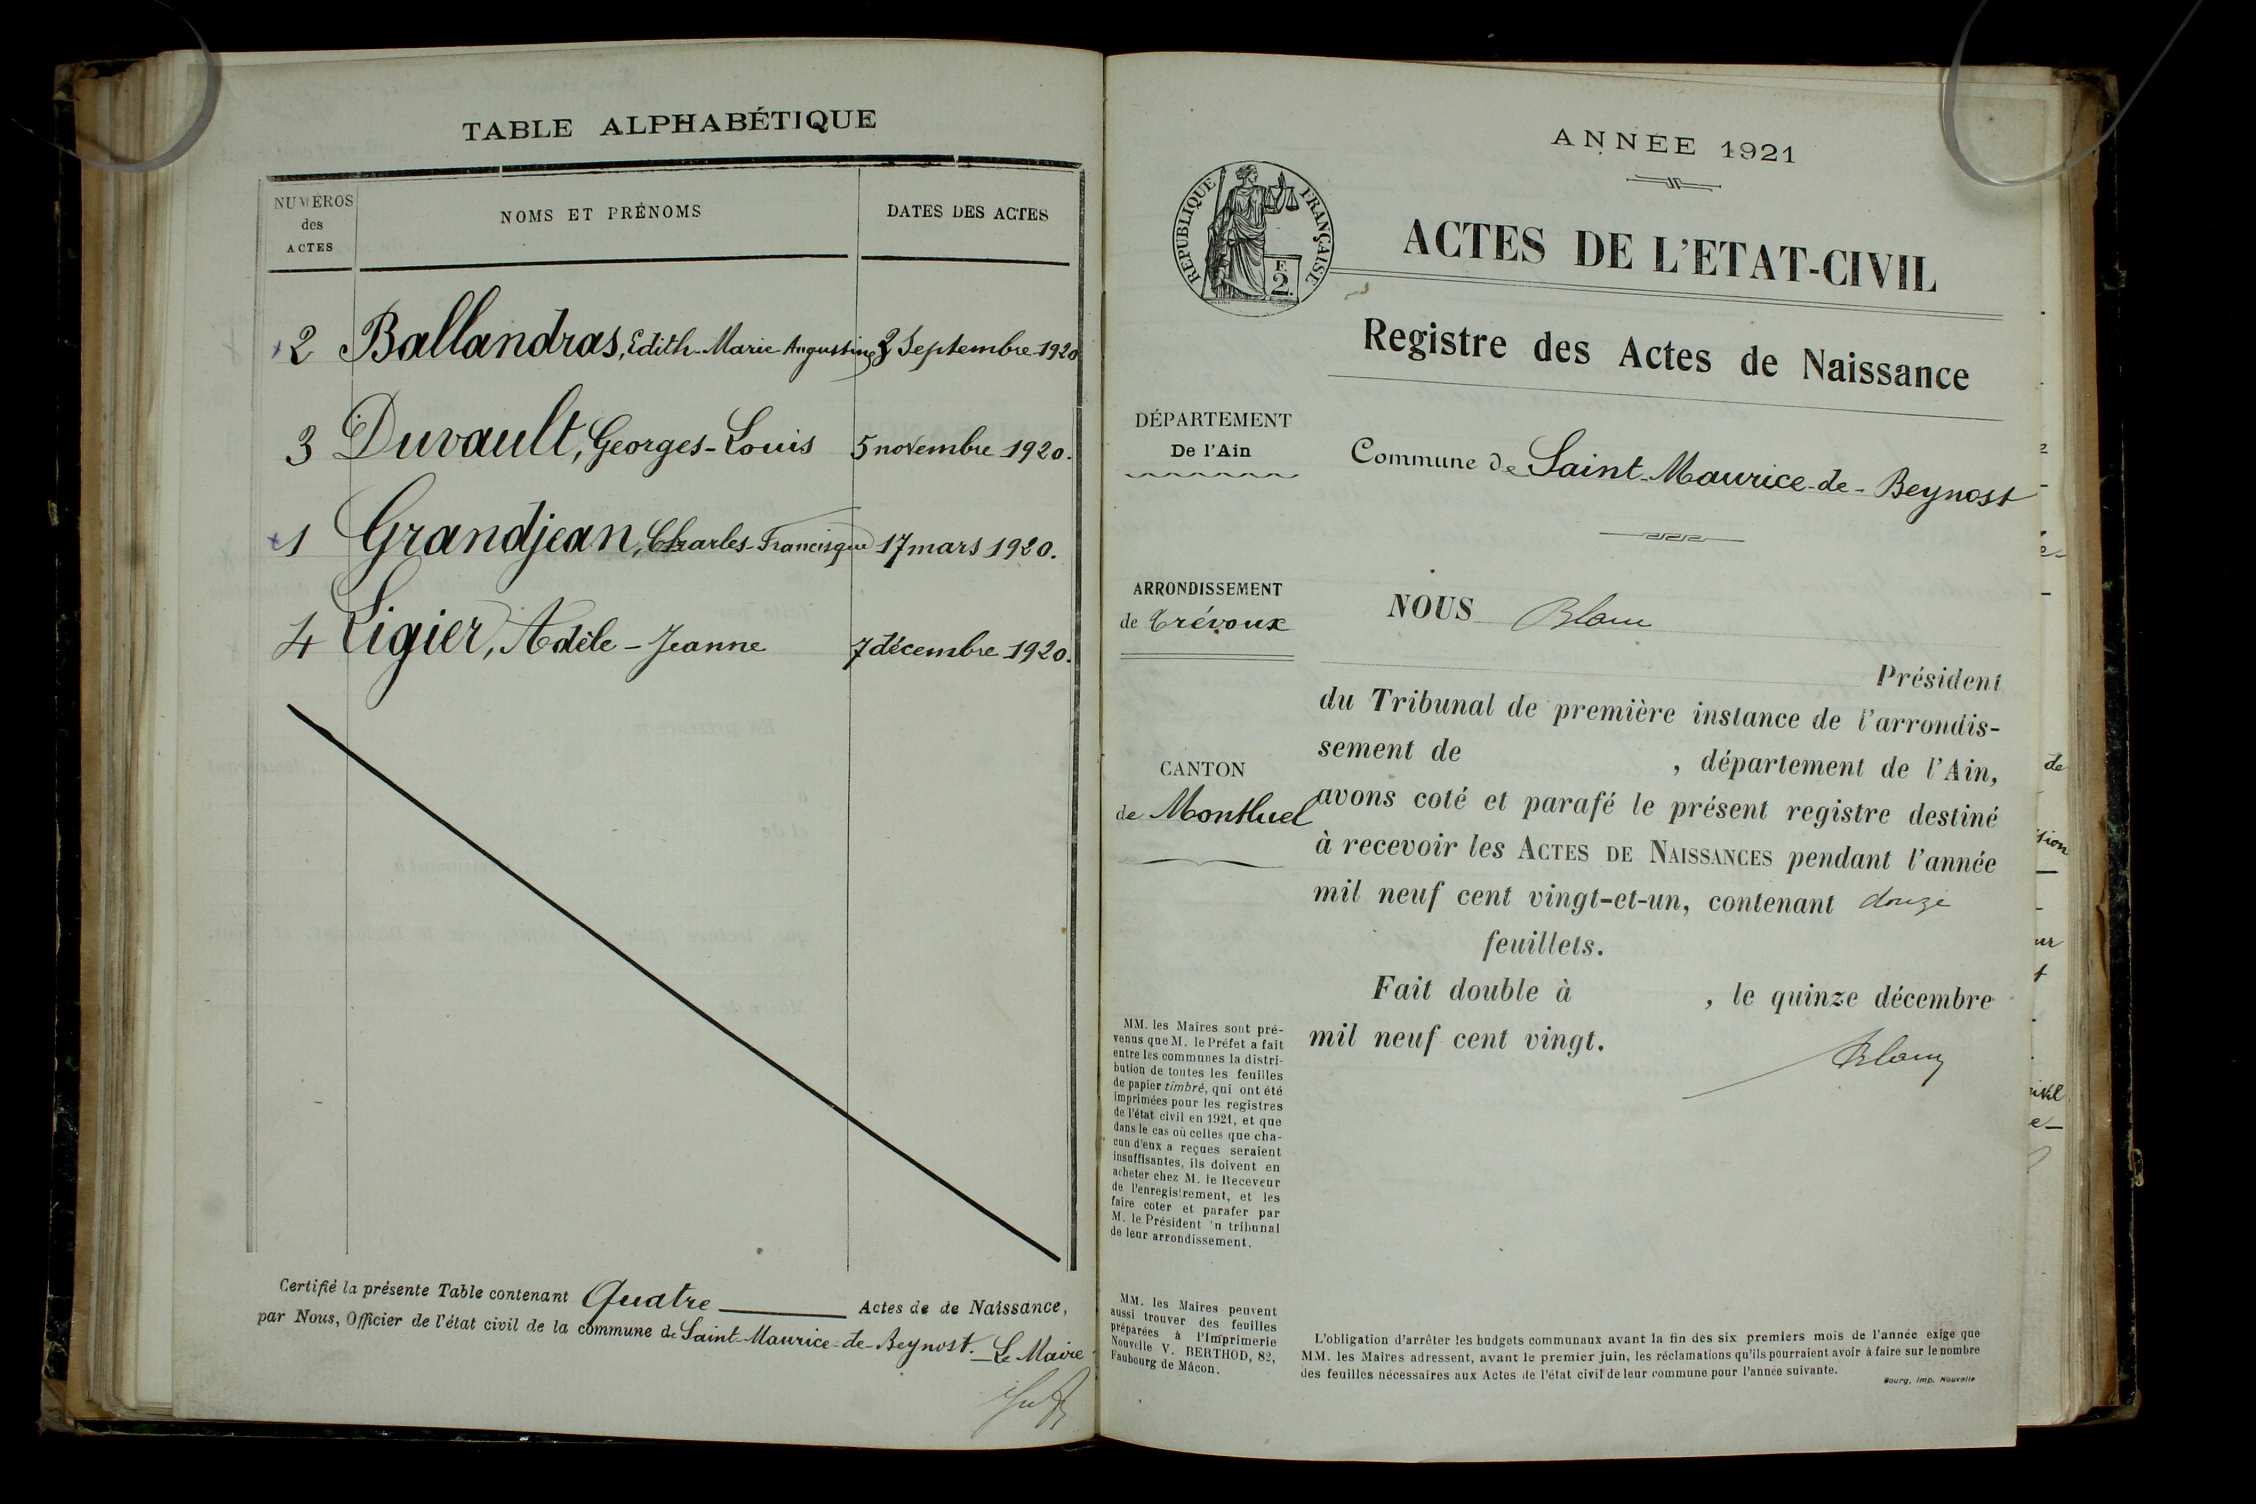 TABLE ALPHABÉTIQUE
NUMÉROS
des
ACTES
NOMS ET PRÉNOMS
DATES DES ACTES
2 Ballandras, Edith-Marie-Augustine 2 Septembre 1920
3 Duvault, Georges-Louis 5 novembre 1920.
1 Grandjean, Charles-Francisque 17 mars 1920.
4 Ligier, Adèle-Jeanne 7 décembre 1920.
Certifié la présente Table contenant Quatre Actes de de Naissance,
par Nous, Officier de l'état civil de la commune de Saint-Maurice-de-Beynost. Le Maire
ANNÉE 1921
RÉPUBLIQUE FRANÇAISE
F.
2.
ACTES DE L'ETAT-CIVIL
Registre des Actes de Naissance
DÉPARTEMENT
De l'Ain
Commune de Saint-Maurice-de-Beynost
ARRONDISSEMENT
de Trévoux
CANTON
de Montluel
MM. les Maires sont pré-
venus que M. le Préfet a fait
entre les communes la distri-
bution de toutes les feuilles
de papier timbré, qui ont été
imprimées pour les registres
de l'état civil en 1921, et que
dans le cas où celles que cha-
cun d'eux a reçues seraient
insuffisantes, ils doivent en
acheter chez M. le Receveur
de l'enregistrement, et les
faire coter et parafer par
M. le Président 'n tribunal
de leur arrondissement.
MM. les Maires peuvent
aussi trouver des feuilles
préparées à l'Imprimerie
Nouvelle V. BERTHOD, 82,
Faubourg de Mâcon.
NOUS Blanc
Président
du Tribunal de première instance de l'arrondis-
sement de , département de l'Ain,
avons coté et parafé le présent registre destiné
à recevoir les ACTES DE NAISSANCES pendant l'année
mil neuf cent vingt-et-un, contenant douze
feuillets.
Fait double à , le quinze décembre
mil neuf cent vingt.
Blanc
L'obligation d'arrêter les budgets communaux avant la fin des six premiers mois de l'année exige que
MM. les Maires adressent, avant le premier juin, les réclamations qu'ils pourraient avoir à faire sur le nombre
des feuilles nécessaires aux Actes de l'état civil de leur commune pour l'année suivante.
Bourg, Imp. Nouvelle